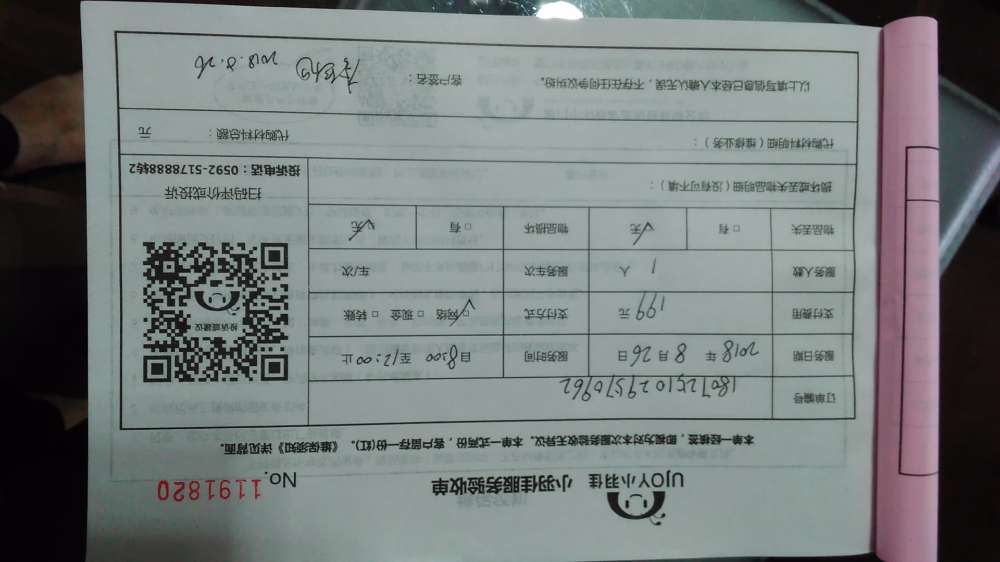 UJOY小羽佳 小羽佳服务验收单 No. 1191820
本一单经核签，即视为对本次服务验收无异议。本单一式两份，客户留存一份(红)。《维保须知》详见背面。
订单编号 1807251029570962
服务日期 2018年8月26日 服务时间 自8:00至12:00止
支付费用 199元 支付方式 ☑网络 □现金 □转账
服务人数 1人 服务车次 车/次
物品丢失 □有 ☑无 物品损坏 □有 ☑无
损坏或丢失物品明细（没有可不填）：
代购材料明细（维修业务）： 代购材料总额： 元
以上填写信息已经本人确认无误，不存在任何争议纠纷。 客户签名： 2018.8.26
投诉或建议
扫码评价或投诉
投诉电话：0592-5178888转2